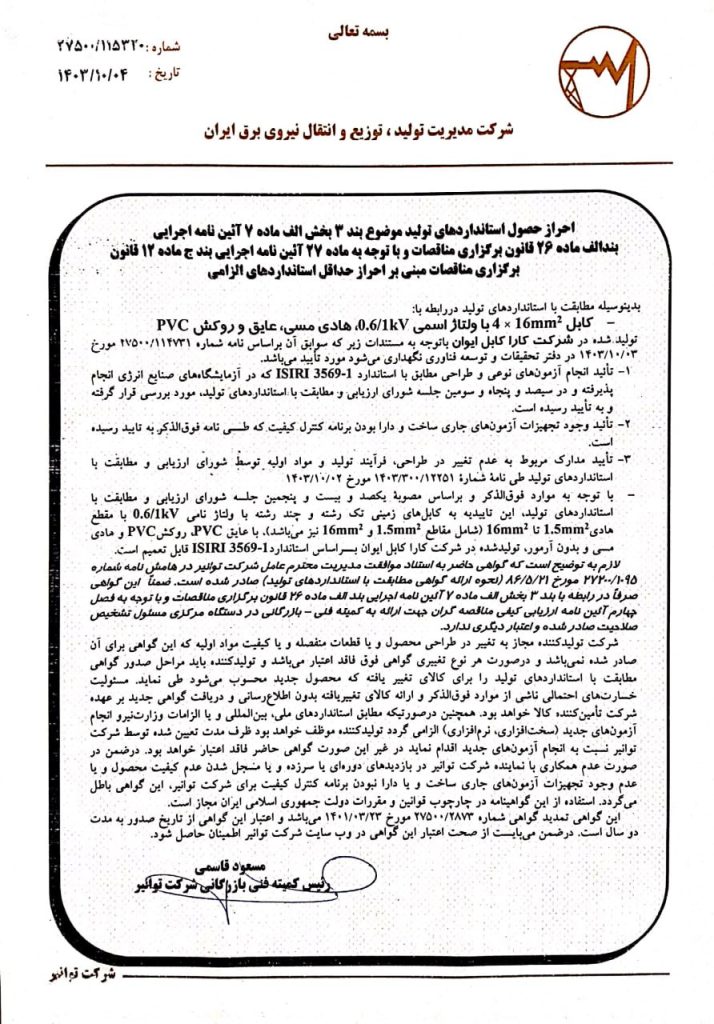 بسمه تعالی
شماره : ۲۷۵۰۰/۱۱۵۳۲۰
تاریخ : ۱۴۰۳/۱۰/۰۴
شرکت مدیریت تولید ، توزیع و انتقال نیروی برق ایران
احراز حصول استانداردهای تولید موضوع بند ۳ بخش الف ماده ۷ آئین نامه اجرایی
بندالف ماده ۲۶ قانون برگزاری مناقصات و با توجه به ماده ۲۷ آئین نامه اجرایی بند ج ماده ۱۲ قانون
برگزاری مناقصات مبنی بر احراز حداقل استانداردهای الزامی
بدینوسیله مطابقت با استانداردهای تولید دررابطه با:
– کابل 4 × 16mm² با ولتاژ اسمی 0.6/1kV، هادی مسی، عایق و روکش PVC
تولید شده در شرکت کارا کابل ایوان باتوجه به مستندات زیر که سوابق آن براساس نامه شماره ۲۷۵۰۰/۱۱۴۷۳۱ مورخ
۱۴۰۳/۱۰/۰۳ در دفتر تحقیقات و توسعه فناوری نگهداری می‌شود مورد تأیید می‌باشد.
۱- تأئید انجام آزمون‌های نوعی و طراحی مطابق با استاندارد ISIRI 3569-1 که در آزمایشگاه‌های صنایع انرژی انجام
پذیرفته و در سیصد و پنجاه و سومین جلسه شورای ارزیابی و مطابقت با استانداردهای تولید، مورد بررسی قرار گرفته
و به تأیید رسیده است.
۲- تأئید وجود تجهیزات آزمون‌های جاری ساخت و دارا بودن برنامه کنترل کیفیت که طی نامه فوق‌الذکر به تایید رسیده
است.
۳- تأیید مدارک مربوط به عدم تغییر در طراحی، فرآیند تولید و مواد اولیه توسط شورای ارزیابی و مطابقت با
استانداردهای تولید طی نامهٔ شمارهٔ ۱۴۰۳/۳۰۰/۱۲۲۵۱ مورخ ۱۴۰۳/۱۰/۰۲
– با توجه به موارد فوق‌الذکر و براساس مصوبهٔ یکصد و بیست و پنجمین جلسه شورای ارزیابی و مطابقت با
استانداردهای تولید، این تاییدیه به کابل‌های زمینی تک رشته و چند رشته با ولتاژ نامی 0.6/1kV با مقطع
هادی 1.5mm² تا 16mm² (شامل مقاطع 1.5mm² و 16mm² نیز می‌باشد)، با عایق PVC، روکش PVC و هادی
مسی و بدون آرمور، تولیدشده در شرکت کارا کابل ایوان براساس استاندارد ISIRI 3569-1 قابل تعمیم است.
لازم به توضیح است که گواهی حاضر به استناد موافقت مدیریت محترم عامل شرکت توانیر در هامش نامه شماره
۲۷۲۰۰/۱۰۹۵ مورخ ۸۶/۵/۲۱ (نحوه ارائه گواهی مطابقت با استانداردهای تولید) صادر شده است. ضمناً این گواهی
صرفاً در رابطه با بند ۳ بخش الف ماده ۷ آئین نامه اجرایی بند الف ماده ۲۶ قانون برگزاری مناقصات و با توجه به فصل
چهارم آئین نامه ارزیابی کیفی مناقصه گران جهت ارائه به کمیته فنی – بازرگانی در دستگاه مرکزی مسئول تشخیص
صلاحیت صادر شده و اعتبار دیگری ندارد.
شرکت تولیدکننده مجاز به تغییر در طراحی محصول و یا قطعات منفصله و یا کیفیت مواد اولیه که این گواهی برای آن
صادر شده نمی‌باشد و درصورت هر نوع تغییری گواهی فوق فاقد اعتبار می‌باشد و تولیدکننده باید مراحل صدور گواهی
مطابقت با استانداردهای تولید را برای کالای تغییر یافته که محصول جدید محسوب می‌شود طی نماید. مسئولیت
خسارت‌های احتمالی ناشی از موارد فوق‌الذکر و ارائه کالای تغییریافته بدون اطلاع‌رسانی و دریافت گواهی جدید بر عهده
شرکت تأمین‌کننده کالا خواهد بود. همچنین درصورتیکه مطابق استانداردهای ملی، بین‌المللی و یا الزامات وزارت‌نیرو انجام
آزمون‌های جدید (سخت‌افزاری، نرم‌افزاری) الزامی گردد تولیدکننده موظف خواهد بود ظرف مدت تعیین شده توسط شرکت
توانیر نسبت به انجام آزمون‌های جدید اقدام نماید در غیر این صورت گواهی حاضر فاقد اعتبار خواهد بود. درضمن در
صورت عدم همکاری با نماینده شرکت توانیر در بازدیدهای دوره‌ای یا سرزده و یا مسجل شدن عدم کیفیت محصول و یا
عدم وجود تجهیزات آزمون‌های جاری ساخت و یا دارا نبودن برنامه کنترل کیفیت برای شرکت توانیر، این گواهی باطل
می‌گردد. استفاده از این گواهینامه در چارچوب قوانین و مقررات دولت جمهوری اسلامی ایران مجاز است.
این گواهی تمدید گواهی شماره ۲۷۵۰۰/۲۸۷۳ مورخ ۱۴۰۱/۰۳/۲۳ می‌باشد و اعتبار این گواهی از تاریخ صدور به مدت
دو سال است. درضمن می‌بایست از صحت اعتبار این گواهی در وب سایت شرکت توانیر اطمینان حاصل شود.
مسعود قاسمی
رئیس کمیته فنی بازرگانی شرکت توانیر
شرکت توانیر